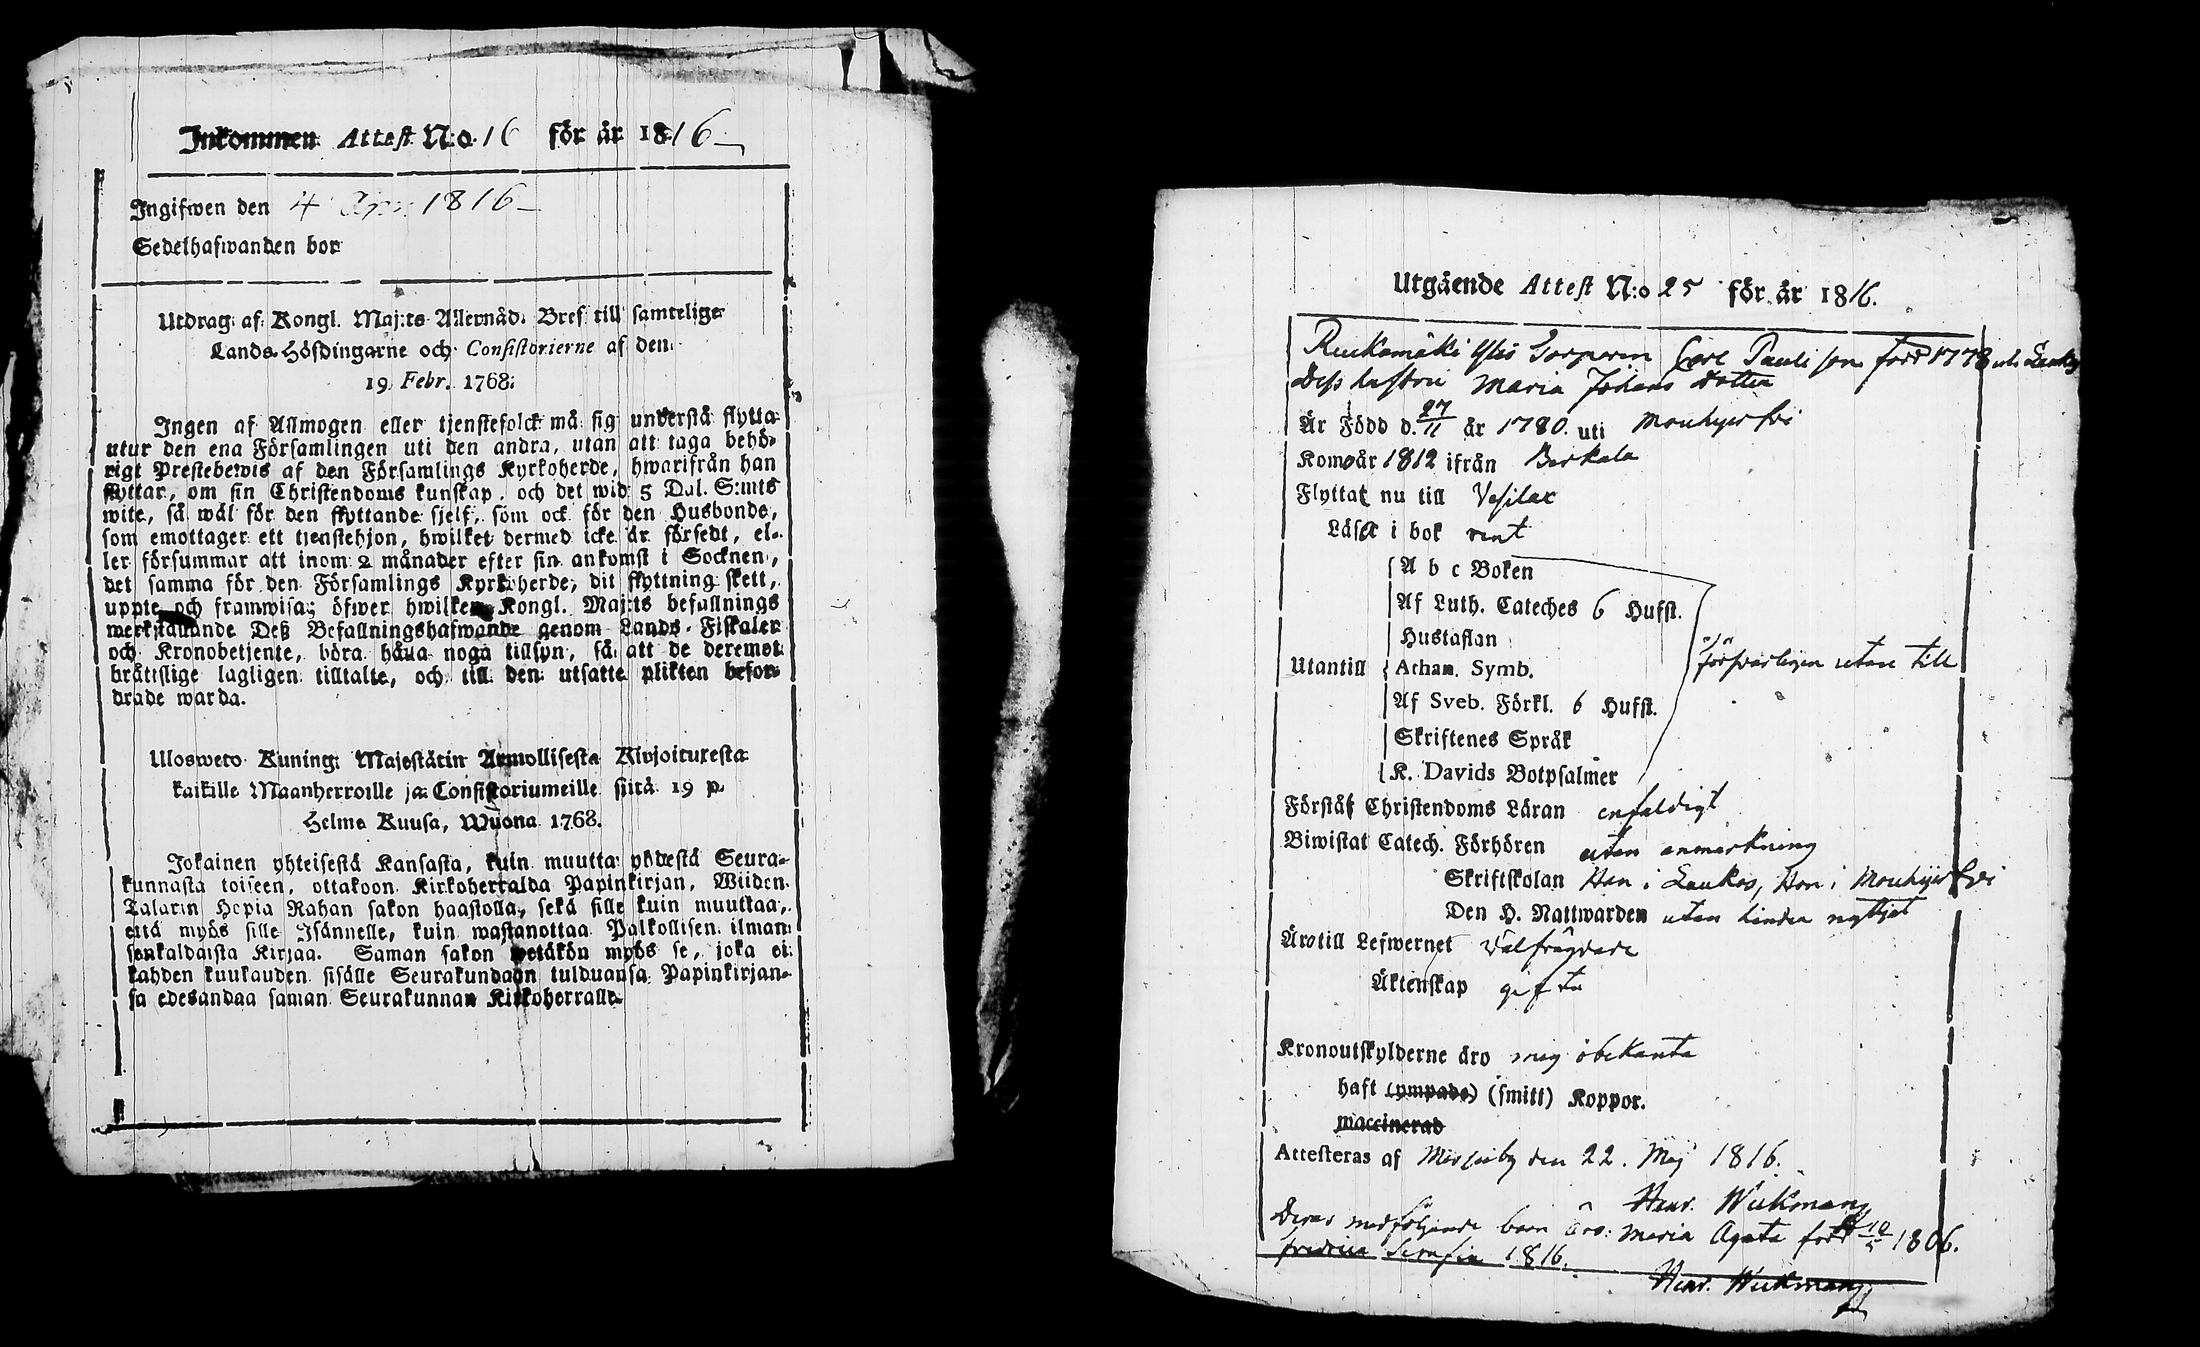 Inkommen Attest N:o 16 för år 1816
Ingifwen den 4 Apr. 1816
Sedelhafwanden bor
Utdrag af Kongl. Maj:ts Allernåd. Bref till samtelige
Lands-Höfdingarne och Consistorierne af den
19 Febr. 1768.
Ingen af Allmogen eller tjenstefolck må sig understå flytta
utur den ena Församlingen uti den andra, utan att taga behö-
rigt Prestebewis af den Församlings Kyrkoherde, hwarifrån han
flyttar, om sin Christendoms kunskap, och det wid 5 Dal. S:mts
wite, så wäl för den flyttande sjelf, som ock för den Husbonde,
som emottager ett tjenstehjon, hwilket dermed icke är försedt, el-
ler försummar att inom 2 månader efter sin ankomst i Socknen,
det samma för den Församlings Kyrkoherde, dit flyttning skett,
uppte och framwisa; öfwer hwilken Kongl. Maj:ts befallnings
werkställande Deß Befallningshafwande genom Lands-Fiskaler
och Kronobetjente, böra hålla noga tillsyn, så att de deremot
bråttslige lagligen tilltalte, och till den utsatte plikten befor-
drade warda.
Ulosweto Kuning: Majestätin Armollisesta Kirjoituxesta
kaikille Maanherroille ja Consistoriumeille siitä 19 p.
Helme Kuusa, Wuona 1768.
Jokainen yhteisestä Kansasta, kuin muutta yhdestä Seura-
kunnasta toiseen, ottakoon Kirkoherralda Papinkirjan, Wiiden
Talarin Hopia Rahan sakon haastolla, sekä sille kuin muuttaa,
että myös sille Isännelle, kuin wastanottaa Palkollisen ilman
senkaldaista Kirjaa. Saman sakon wetäkön myös se, joka ei
kahden kuukauden sisälle Seurakundaan tulduansa Papinkirjan-
sa edesandaa saman Seurakunnan Kirkoherralle.
Utgående Attest N:o 25 för år 1816.
Ruokamäki Carl Pauli son född 1778 uti
Dess hustru Maria Johans dotter
Är Född d. 27/11 år 1780. uti Mouhijerfvi
Kom år 1812 ifrån Birkala
Flyttat nu till Vesilax
Läsa i bok rent
A b c Boken
Af Luth. Cateches 6 Hufst.
Hustaflan
Utantill Athan. Symb. försvarligen utan till
Af Sveb. Förkl. 6 Hufst.
Skriftenes Språk
K. Davids Botpsalmer
Förstå Christendoms Läran enfaldigt
Biwistat Catech. Förhören utan anmerkning
Skriftskolan Han i Laukos, Hon i Mouhijerfvi
Den H. Nattwarden utan hinder nyttjat
Äro till Lefwernet välfrägdade
Äktenskap gifta
Kronoutskylderne äro mig obekanta
haft (ympade) (smitt) Koppor.
waccinerad
Attesteras af den 22. Maj 1816.
Henr. Wickman
Deras medföljande barn äro: Maria Agata född 10/5 1806.
fredrica Serafia 1816.
Henr. Wickman